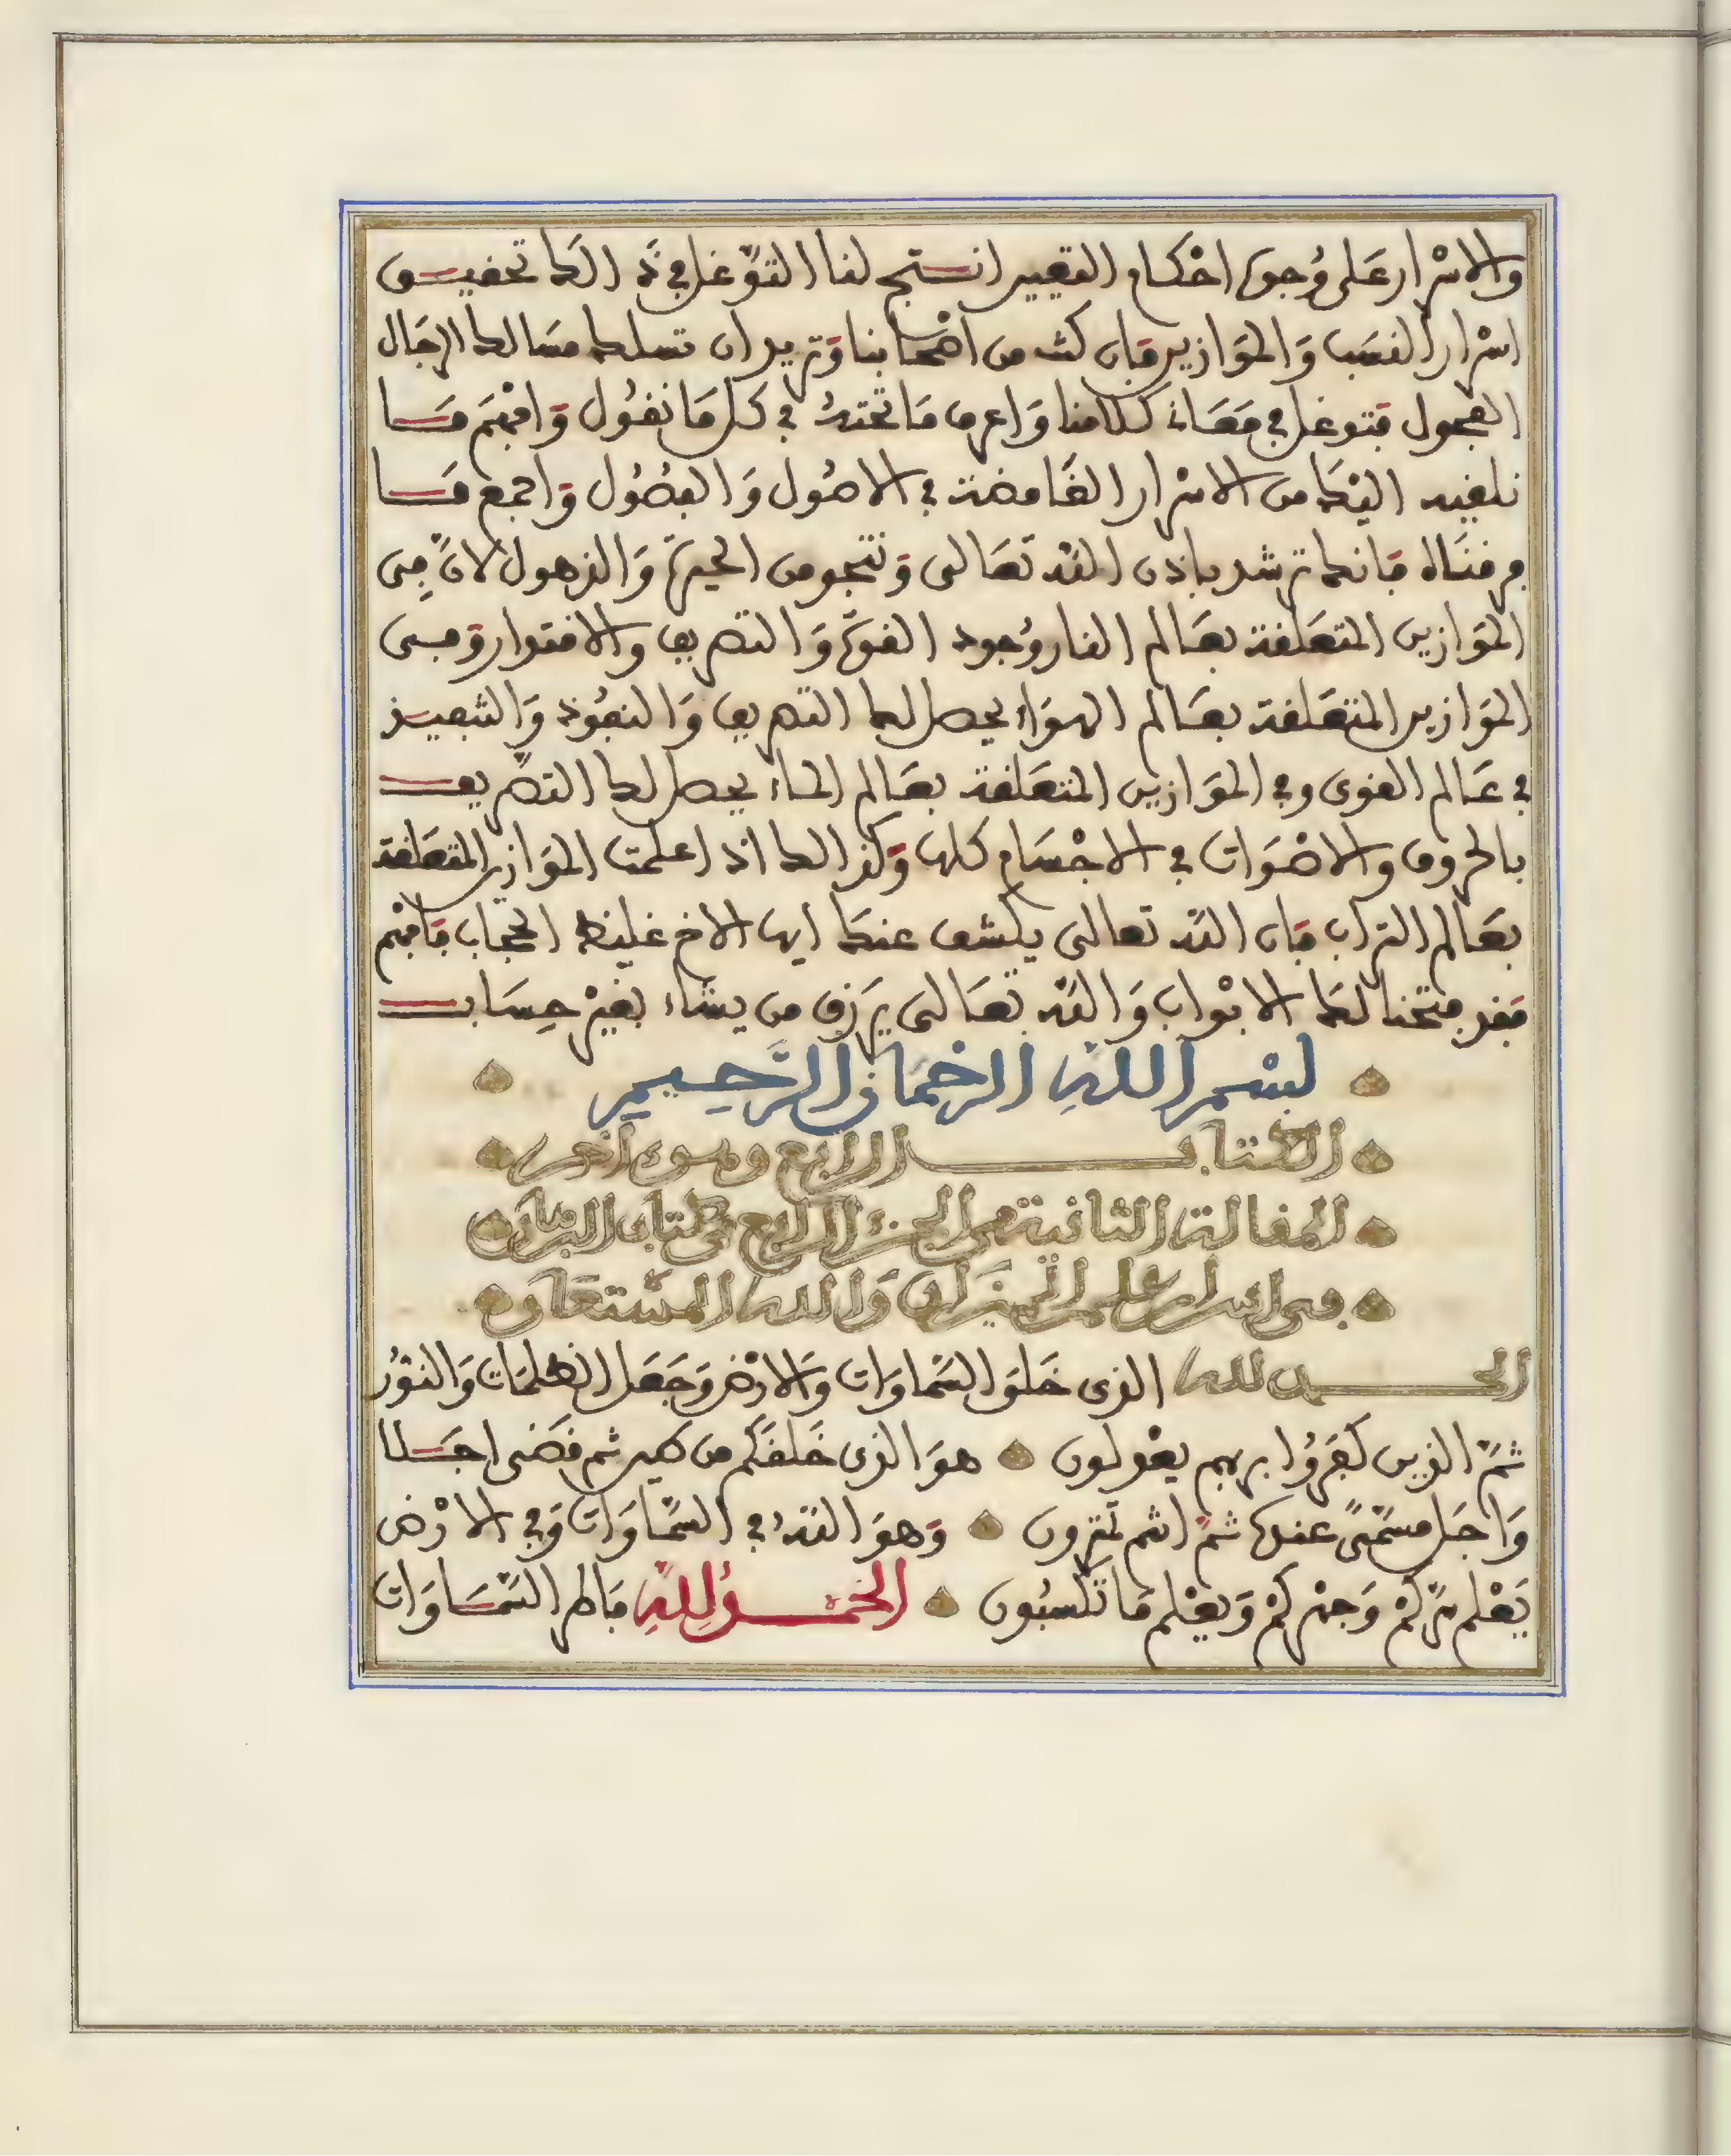 والاسْرار عَلى وُجوه احْكام التقييد انستج لنا التوَّغل في ذَالك تحقيق
اسْرار النسَب وَالموَازين فان كنت من اصْحابنا وَتريد ان تسلك مسَالك الرجَال
الفحول فتوغل في معَاني كلامنا وَاعرف مَا تحته في كل مَا نقُول وَافهَم مَا
نلقيه اليْك من الاسْرار الغَامضة في الاصُول وَالفصُول وَاجمع مَا
فرقنَاه فانك ترشد باذن اللّه تعَالى وَتنجو من الحيرة وَالذهول لانَّ في
الموَازين المتعَلقة بعَالم النار وُجود القوَّة وَالتصريف والاقتدار وَفى
الموَازين المتعَلقة بعَالم الهوَاء يحصل لك التصريف وَالنفُوذ وَالتنفيذ
في عَالم القوى وفي الموَازين المتعَلقة بعَالم الماء يحصل لك التصَّريف
بالحروف والاصْوَات في الاجْسَام كلها وَكذالك اذا علمت الموَازين المتعَلقة
بعَالم التراب فان اللّه تعالى يكشف عنك ايها الاخ غليظ الحجاب فافهَم
فقد فتحنا لك الابْواب وَاللّه تعَالى يرَزق من يشاء بغيْر حِسَاب
بسْم اللهِ الرحْمَان الرَّحِيم
الكتاب الرابع وهو من اخر
المقالة الثانية من الجزء الرابع من كتاب البرهان
في اسرار علم الميزَان وَالله المسْتعَان
الحمد لله الذى خَلقَ السَّماوَات وَالارْض وَجَعَل الظلمَات وَالنوُر
ثمَّ الذين كفَرُوا بربهم يعْدلون هوَ الذى خَلقَكم من طين ثم قضَى اجَلا
وَاجَل مسَمّىً عندَه ثمَّ انتم تمترون وَهوَ اللّهُ في السَّماوَات وَفي الارْض
يَعْلم سرَّكمْ وَجهْركمْ وَيعْلم مَا تكسبُون الحَمْدُ لِلَّهِ فاطر السَّماوَات